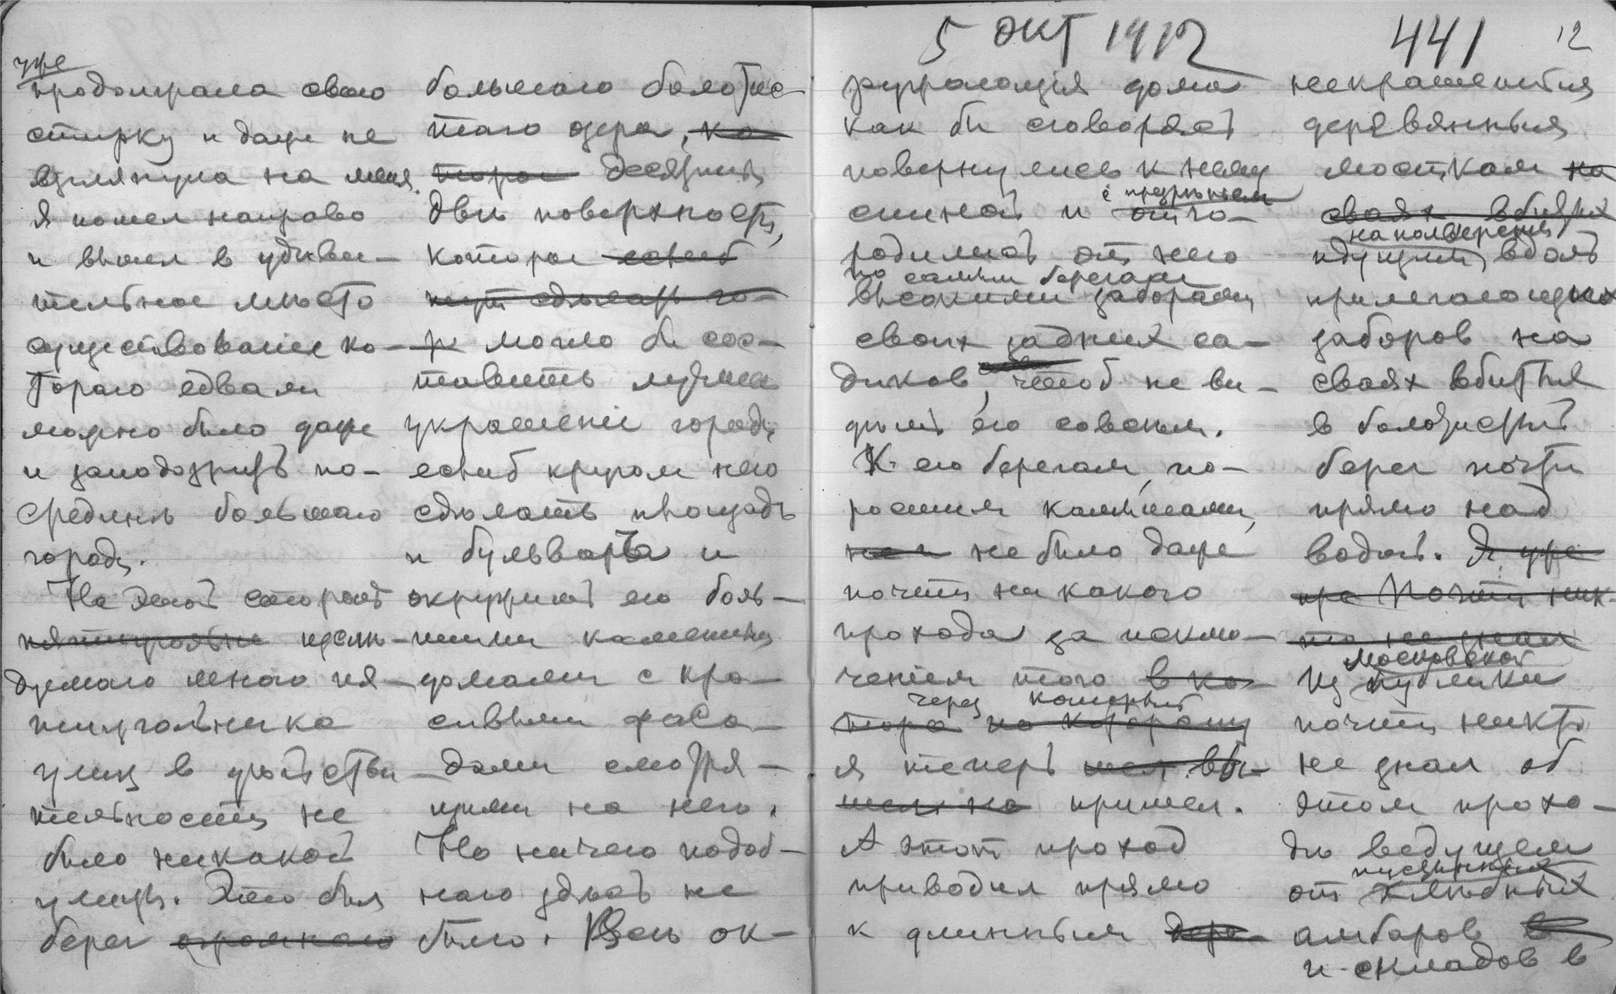 уже
продолжала свою
стирку и даже не
взглянула на меня.
Я пошел направо
и вышел в удиви-
тельное мѣсто
существованіе ко-
тораго едва ли
можно было даже
и заподозрить по-
срединѣ большаго
города.
На этой сторонѣ
думаго много уя-
тиугольника
улиц в дѣйстви-
тельности не
было никакой
улицы. Это был
берег огромнаго
большаго болотис-
таго озера, ко-
торое десятины
двѣ поверхности,
которое еслиб
могло бы сос-
тавить лучшее
украшеніе города
еслиб кругом него
сдѣлать площадь
и бульвары и
окружить его боль-
шими каменными
домами с кра-
сивыми фаса-
дами смотря-
щими на него.
Но ничего подоб-
наго здѣсь не
было. Весь ок-
5 ОКТ 1912
441
12
ружающія дома
как бы сговорясь
повернулись к нему
с презрѣніем
спиной и отго-
родились от него
по самым берегам
высокими заборами
своих задних са-
диков, чтоб не ви-
дѣть его совсѣм.
К его берегам, по-
росшим камышами,
не было даже
почти никакого
прохода за исклю-
ченіем того в ко-
через который
тора по которому
я теперь шел вы-
шел на пришел.
А этот проход
приводил прямо
к длинным дере-
некрашеныя
деревянныя
мосткам на
сваях вбитых
на полвершка
идущим вдоль
прилегающих
заборов на
сваях вбитыя
в болотистый
берег почти
прямо над
водой. Я уже
Почти ник-
то не знал
московской
Из публики
почти никто
не знал об
этом прохо-
дѣ ведущем
пустынных
от хлѣбных
амбаров в
и складов в